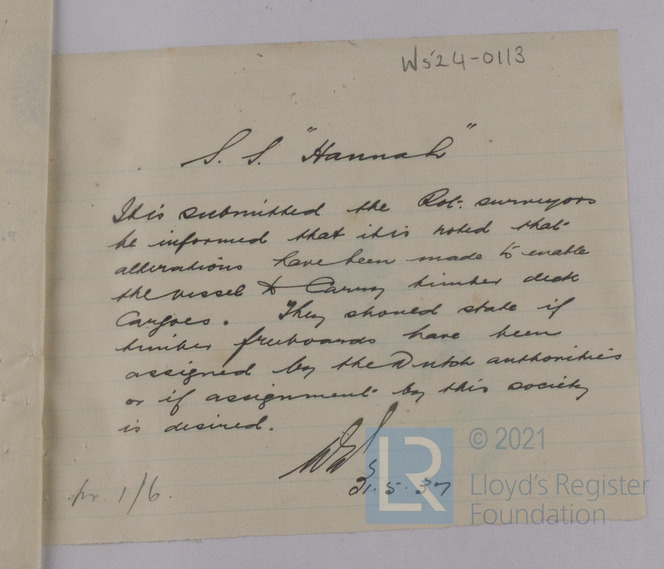 Ws24-0113
S. S. "Hannah"
It is submitted the Rot. surveyors
be informed that it is noted that
alterations have been made to enable
the vessel to carry timber deck
Cargoes. They should state if
timber freeboards have been
assigned by the Dutch authorities
or if assignment by this society
is desired.
21.5.37
1/6.
LR
© 2021
Lloyd's Register
Foundation